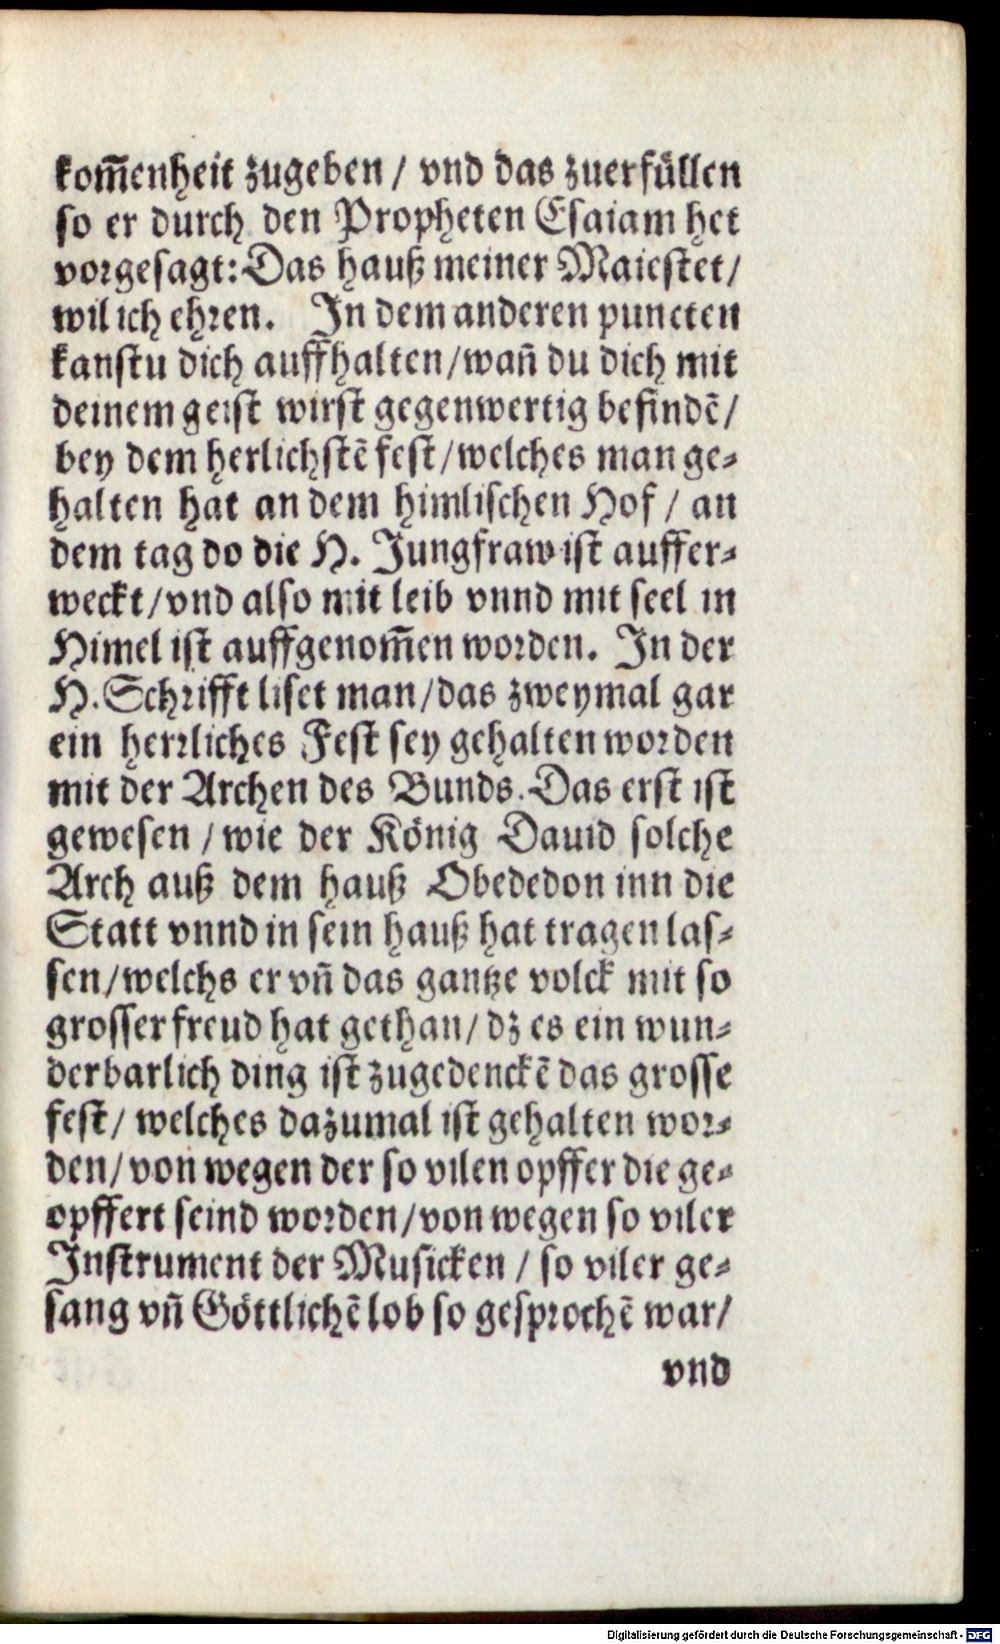 kom̄enheit zugeben / vnd das zuerfüllen
so er durch den Propheten Esaiam het
vorgesagt: Das hauß meiner Maiestet/
wil ich ehren. In dem anderen puncten
kanstu dich auffhalten/wañ du dich mit
deinem geist wirst gegenwertig befindẽ/
bey dem herlichstẽ fest/welches man ge-
halten hat an dem himlischen Hof / an
dem tag do die H. Jungfraw ist auffer-
weckt/vnd also mit leib vnnd mit seel in
Himel ist auffgenom̄en worden. In der
H. Schrifft liset man/das zweymal gar
ein herrliches Fest sey gehalten worden
mit der Archen des Bunds. Das erst ist
gewesen / wie der König Dauid solche
Arch auß dem hauß Obededon inn die
Statt vnnd in sein hauß hat tragen las-
sen/welchs er vñ das gantze volck mit so
grosser freud hat gethan/ dz es ein wun-
derbarlich ding ist zugedenckẽ das grosse
fest/ welches dazumal ist gehalten wor-
den/von wegen der so vilen opffer die ge-
opffert seind worden/von wegen so viler
Instrument der Musicken / so viler ge-
sang vñ Göttlichẽ lob so gesprochẽ war/
vnd
Digitalisierung gefördert durch die Deutsche Forschungsgemeinschaft - DFG